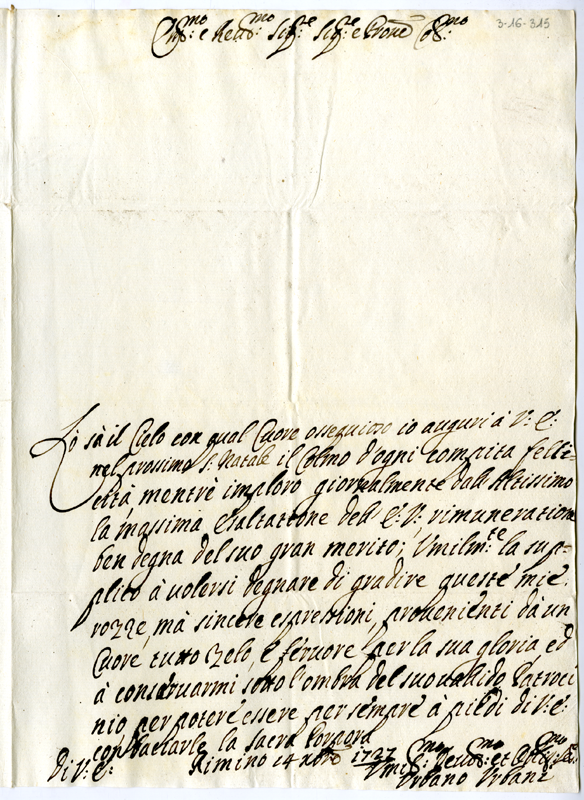 3-16-315
Em.mo e Reud.mo Sig.re Sig.re e Prone Col.mo
Lo sà il Cielo con qual Cuore ossequioso io auguri à V: E:
nel prossimo S. Natale il Colmo d'ogni compita felici-
cità, mentrè imploro giornalmente dall'Altissimo
la massima Esaltatione dell'E: V: rimuneratione
ben degna del suo gran merito; Vmilm.te la sup-
plico à uolersi degnare di gradire queste mie
rozze, mà sincere espressioni, prouenienti dà un
Cuore, tutto Zelo, è feruore per la sua gloria, ed
à conseruarmi sotto l'ombra del suo ualido Patroci
nio per potere essere per sempre à piedi di V: E:
con baciarle la sacra Porpora
Di V: E: Rimino 14 1727
Vmil.mo Deuo.mo et
Vrbano Vrbani